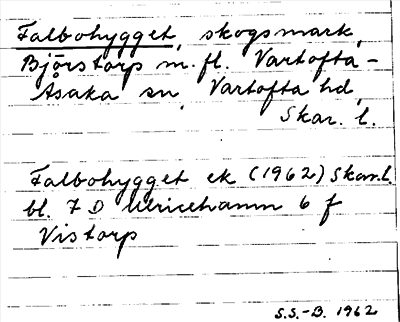 Falbohygget, skogsmark,
Björstorp m.fl. Vartofta-
Åsaka sn, Vartofta hd,
Skar. l.
Falbohygget ek (1962) Skar. l.
bl. 7 D Ulricehamn 6 f
Vistorp
S.S.-B. 1962